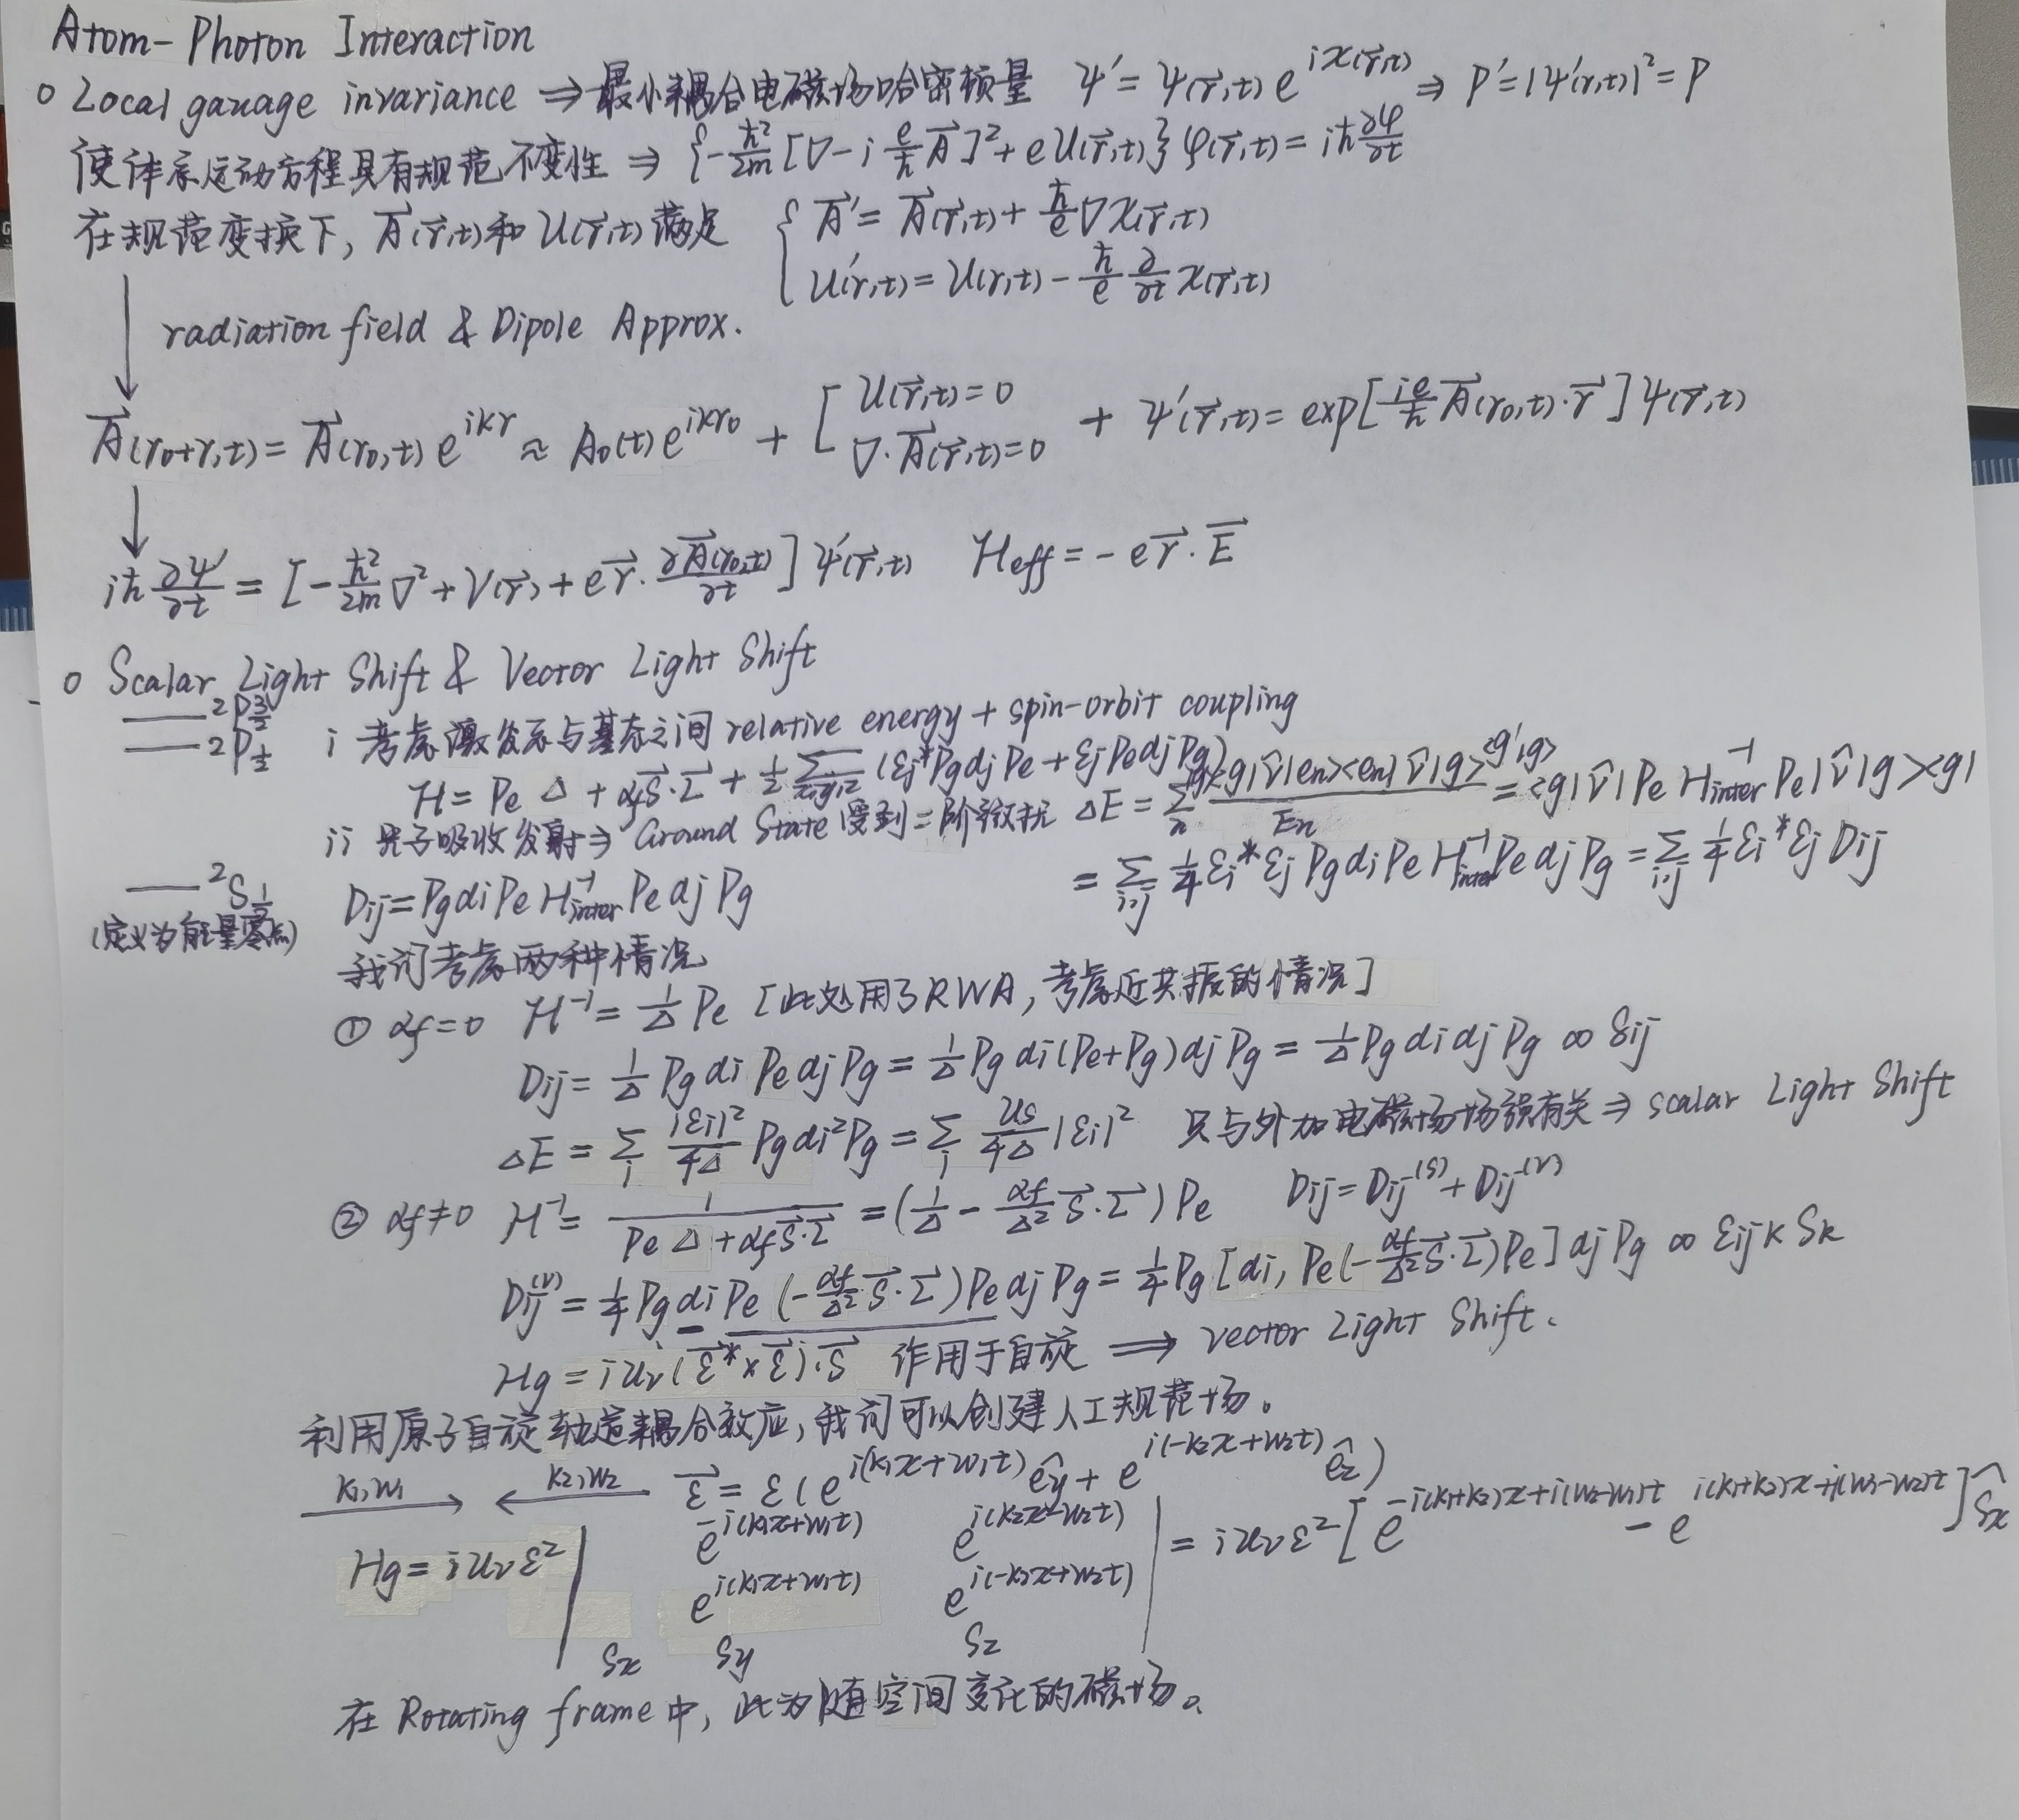 Atom-Photon Interaction
o Local gauage invariance ⇒ 最小耦合电磁场哈密顿量 Ψ' = Ψ(r⃗,t) e^{iχ(r⃗,t)} ⇒ P' = |Ψ'(r,t)|² = P
使体系运动方程具有规范不变性 ⇒ {-ħ²/2m [∇ - i e/ħ A⃗]² + eU(r⃗,t)} φ(r⃗,t) = iħ ∂φ/∂t
在规范变换下, A⃗(r⃗,t)和U(r⃗,t)满足 { A⃗' = A⃗(r⃗,t) + ħ/e ∇χ(r⃗,t)
U'(r,t) = U(r,t) - ħ/e ∂/∂t χ(r⃗,t)
radiation field & Dipole Approx.
A⃗(r₀+r,t) = A⃗(r₀,t) e^{ikr} ≈ A₀(t) e^{ikr₀} + [ U(r⃗,t)=0 ∇·A⃗(r⃗,t)=0 + Ψ'(r⃗,t) = exp[ie/ħ A⃗(r₀,t)·r⃗] Ψ(r⃗,t)
iħ ∂Ψ'/∂t = [-ħ²/2m ∇² + V(r⃗) + e r⃗·∂A⃗(r₀,t)/∂t] Ψ'(r⃗,t) Heff = -e r⃗·E⃗
o Scalar Light Shift & Vector Light Shift
²P3/2
²P1/2
i 考虑激发态与基态之间 relative energy + spin-orbit coupling
H = Pe Δ + αf S⃗·L⃗ + 1/2 Σ_{x,y,z} (εj* Pg dj Pe + εj Pe dj Pg)
ii 光子吸收发射 ⇒ Ground State 受到二阶微扰 ΔE = Σn |g><g|V̂|en><en|V̂|g><g'|g>/En = <g|V̂|Pe H⁻¹inter Pe|V̂|g><g|
= Σ_{i,j} 1/4 εi* εj Pg di Pe H⁻¹inter Pe dj Pg = Σ_{i,j} 1/4 εi* εj Dij
²S1/2
(定义为能量零点)
Dij = Pg di Pe H⁻¹inter Pe dj Pg
我们考虑两种情况
① αf=0 H⁻¹ = 1/Δ Pe [此处用了RWA, 考虑近共振的情况]
Dij = 1/Δ Pg di Pe dj Pg = 1/Δ Pg di (Pe+Pg) dj Pg = 1/Δ Pg di dj Pg ∝ δij
ΔE = Σi |εi|²/4Δ Pg di² Pg = Σi Us/4Δ |εi|² 只与外加电磁场场强有关 ⇒ scalar Light Shift
② αf≠0 H⁻¹ = 1/(Pe Δ + αf S⃗·L⃗) = (1/Δ - αf/Δ² S⃗·L⃗) Pe Dij = Dij^(S) + Dij^(V)
Dij^(V) = 1/4 Pg di Pe (-αf/Δ² S⃗·L⃗) Pe dj Pg = 1/4 Pg [di, Pe(-αf/Δ² S⃗·L⃗)Pe] dj Pg ∝ εijk Sk
Hg = i Uv (ε⃗* × ε⃗)·S⃗ 作用于自旋 ⟹ vector Light Shift.
利用原子自旋轨道耦合效应, 我们可以创建人工规范场。
k₁,w₁ → ← k₂,w₂ ε⃗ = ε(e^{i(k₁x+w₁t)} êy + e^{i(-k₂x+w₂t)} êz)
Hg = i Uv ε² | e^{-i(k₁x+w₁t)} e^{i(k₂x-w₂t)}
e^{i(k₁x+w₁t)} e^{i(-k₂x+w₂t)}
Sx Sy Sz | = i Uv ε² [e^{-i(k₁+k₂)x+i(w₂-w₁)t} - e^{i(k₁+k₂)x+i(w₁-w₂)t}] Ŝx
在 Rotating frame 中, 此为随空间变化的磁场。